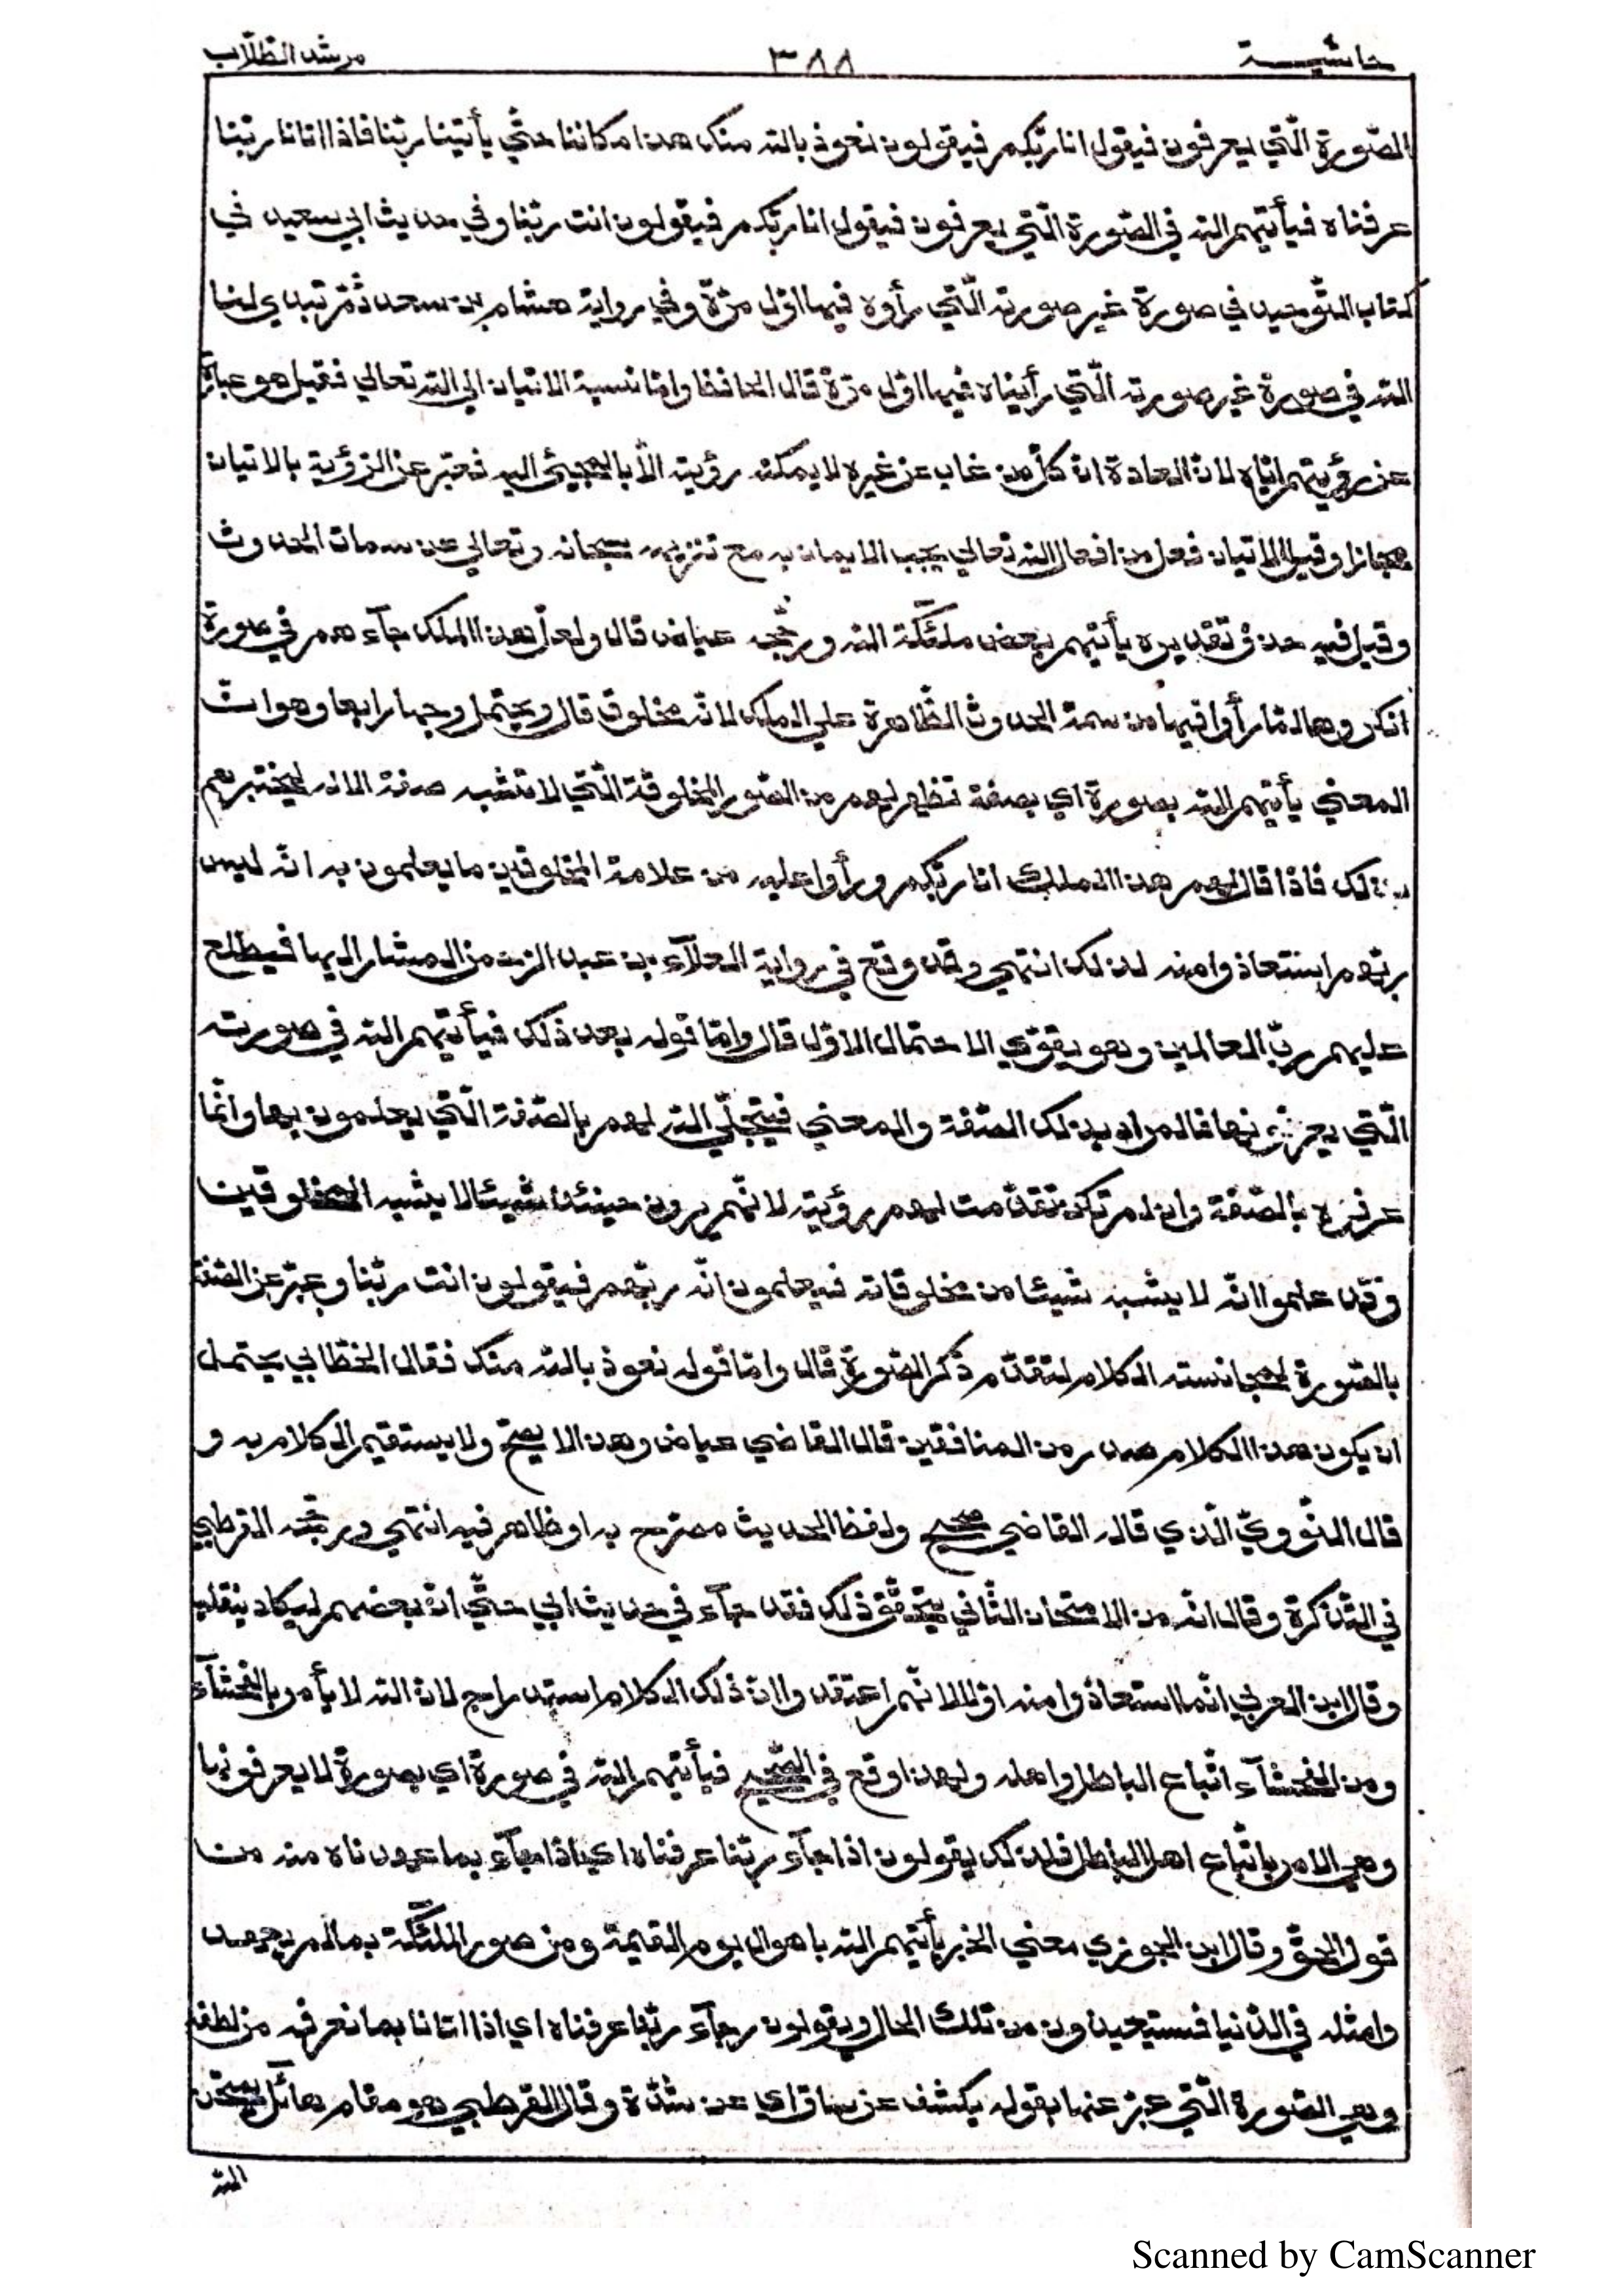 حاشية ٣٨٨ مرشد الطّلّاب
الصّورة الّتي يعرفون فيقول انا ربّكم فيقولون نعوذ بالله منك هذا مكاننا حتّي يأتينا ربّنا فاذا اتانا ربّنا
عرفناه فيأتيهم الله في الصّورة الّتي يعرفون فيقول انا ربّكم فيقولون انت ربّنا وفي حديث ابي سعيد في
كتاب التّوحيد في صورة غير صورته الّتي رأوه فيها اوّل مرّة وفي رواية هشام بن سعد ثمّ تبدي لنا
الله في صورة غير صورته الّتي رأيناه فيها اوّل مرّة قال الحافظ وامّا نسبة الاتيان الي الله تعالي فقيل هو عبارة
عن رؤيتهم ايّاه لانّ العادة انّ كلّ من غاب عن غيره لا يمكنه رؤيته الّا بالمجيئ اليه فعبّر عن الرّؤية بالاتيان
مجازا وقيل الاتيان فعل من افعال الله تعالي يجب الايمان به مع تنزيهه سبحانه وتعالي عن سمات الحدوث
وقيل فيه حذف تقديره يأتيهم بعض ملئكة الله ورجّحه عياض قال ولعلّ هذا الملك جآءهم في صورة
انكروها لمّا رأوا فيها من سمة الحدوث الظّاهرة علي الملك لانّه مخلوق قال ويحتمل وجها رابعا وهو انّ
المعني يأتيهم الله بصورة اي بصفة تظهر لهم من الصّور المخلوقة الّتي لا تشبه صفة الاله ليختبرهم
بذلك فاذا قال لهم هذا الملك انا ربّكم ورأوا عليه من علامة المخلوقين ما يعلمون به انّه ليس
ربّهم استعاذوا منه لذلك انتهي وقد وقع في رواية العلآء بن عبد الرّحمن المشار اليها فيطلع
عليهم ربّ العالمين وهو يقوّي الاحتمال الاوّل قال وامّا قوله بعد ذلك فيأتيهم الله في صورته
الّتي يعرفونها فالمراد بذلك الصّفة والمعني فيتجلّي الله لهم بالصّفة الّتي يعلمون بها وانّما
عرفوه بالصّفة وان لم تكن تقدّمت لهم رؤيته لانّهم يرون حينئذ شيئا لا يشبه المخلوقين
وقد علموا انّه لا يشبه شيئا من مخلوقاته فيعلمون انّه ربّهم فيقولون انت ربّنا وعبّر عن الصّفة
بالصّورة لمجانسته الكلام لتقدّم ذكر الصّورة قال وامّا قوله نعوذ بالله منك فقال الخطّابي يحتمل
ان يكون هذا الكلام صدر من المنافقين قال القاضي عياض وهذا لا يصحّ ولا يستقيم الكلام به و
قال النّوويّ الّذي قاله القاضي صحيح ولفظ الحديث مصرّح به او ظاهر فيه انتهي ورجّحه القرطبي
في التّذكرة وقال انّه من الامتحان الثّاني يتحقّق ذلك فقد جآء في حديث ابي حتّي انّ بعضهم ليكاد ينقلب
وقال ابن العربي انّما استعاذوا منه اوّلا لانّهم اعتقدوا انّ ذلك الكلام استدراج لانّ الله لا يأمر بالفحشآء
ومن الفحشآء اتّباع الباطل واهله ولهذا وقع في الصّحيح فيأتيهم الله في صورة اي بصورة لا يعرفونها
وهي الامر باتّباع اهل الباطل فلذلك يقولون اذا جآء ربّنا عرفناه اي اذا جآء بما عهدناه منه من
قول الحقّ وقال ابن الجوزي معني الخبر يأتيهم الله باهوال يوم القيمة ومن صور الملئكة بما لم يعهدوا
مثله في الدّنيا فيستعيذون من تلك الحال ويقولون اذا جآء ربّنا عرفناه اي اذا اتانا بما نعرفه من لطفه
وهي الصّورة الّتي عبّر عنها بقوله يكشف عن ساق اي عن شدّة وقال القرطبي هو مقام هآئل يمتحن
الله
Scanned by CamScanner